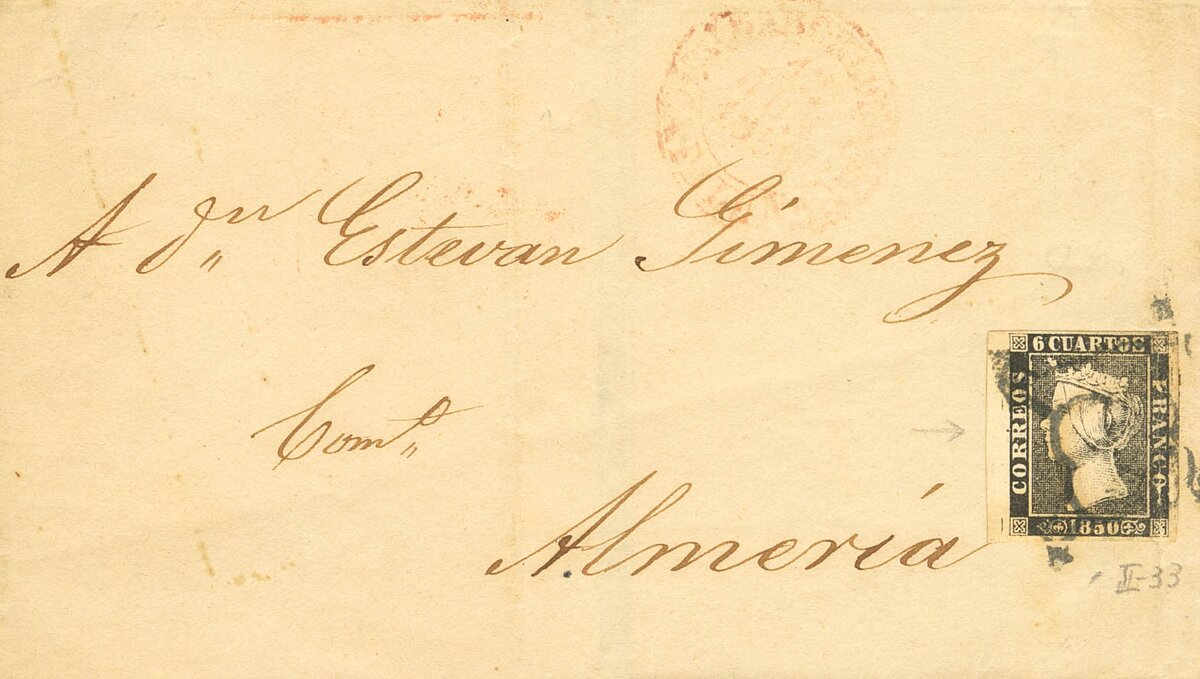 A dn„ Estevan Gimenez
Como„
Almería
6 CUARTOS
CORREOS
FRANCO
1850
II-33